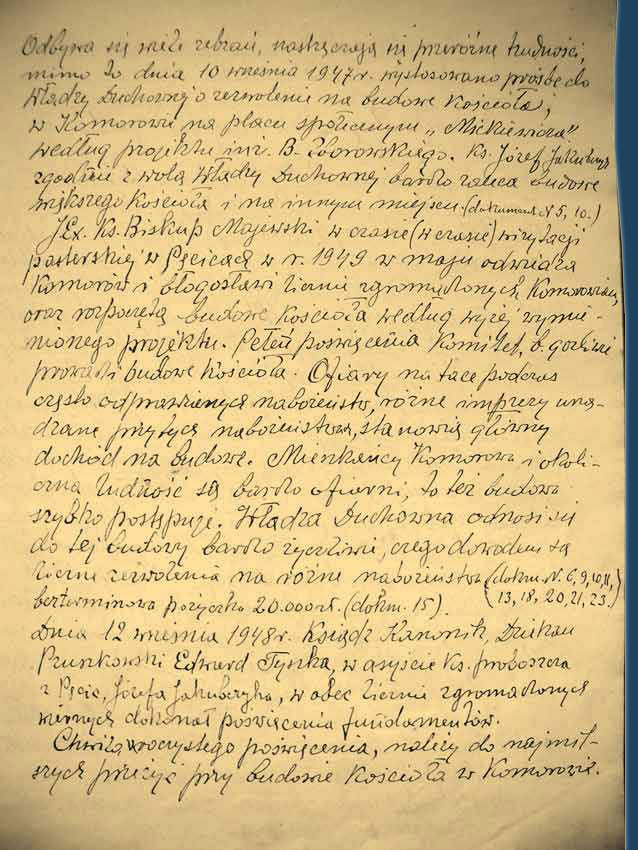 Odbywa się wiele zebrań, nastręczają się przeróżne trudności,
mimo to dnia 10 września 1947r. wystosowano prośbę do
Władzy Duchownej o zezwolenie na budowę Kościoła,
w Komorowie na placu społecznym „Mickiewicza"
według projektu inż. B. Zborowskiego. Ks. Józef Jakubczyk
zgodnie z wolą Władzy Duchownej bardzo zaleca budowę
większego Kościoła i na innym miejscu. (dokument N 5, 10.)
JEx. Ks. Biskup Majewski w czasie (w czasie) wizytacji
pasterskiej w Pęcicach w r. 1949 w maju odwiedza
Komorów i błogosławi licznie zgromadzonych Komorowian,
oraz rozpoczętą budowę Kościoła według wyżej wymie-
nionego projektu. Pełen poświęcenia Komitet, b. gorliwie
prowadzi budowę Kościoła. Ofiary na tacę podczas
często odprawianych nabożeństw, różne imprezy urzą-
dzane przy tych nabożeństwach, stanowią główny
dochód na budowę. Mieszkańcy Komorowa i okoli-
czna ludność są bardzo ofiarni, to też budowa
szybko postępuje. Władza Duchowna odnosi się
do tej budowy bardzo życzliwie, czego dowodem są
liczne zezwolenia na różne nabożeństwa (dokm. N. 6, 9, 10, 11,
13, 18, 20, 21, 23.)
bezterminowa pożyczka 20.000 zł. (dokm. 15).
Dnia 12 września 1948r. Ksiądz Kanonik, Dziekan
Pruszkowski Edward Tyszka, w asyście ks. proboszcza
z Pęcic, Józefa Jakubczyka, wobec licznie zgromadzonych
wiernych dokonał poświęcenia fundamentów.
Chwila uroczystego poświęcenia, należy do najmil-
szych przeżyć przy budowie Kościoła w Komorowie.